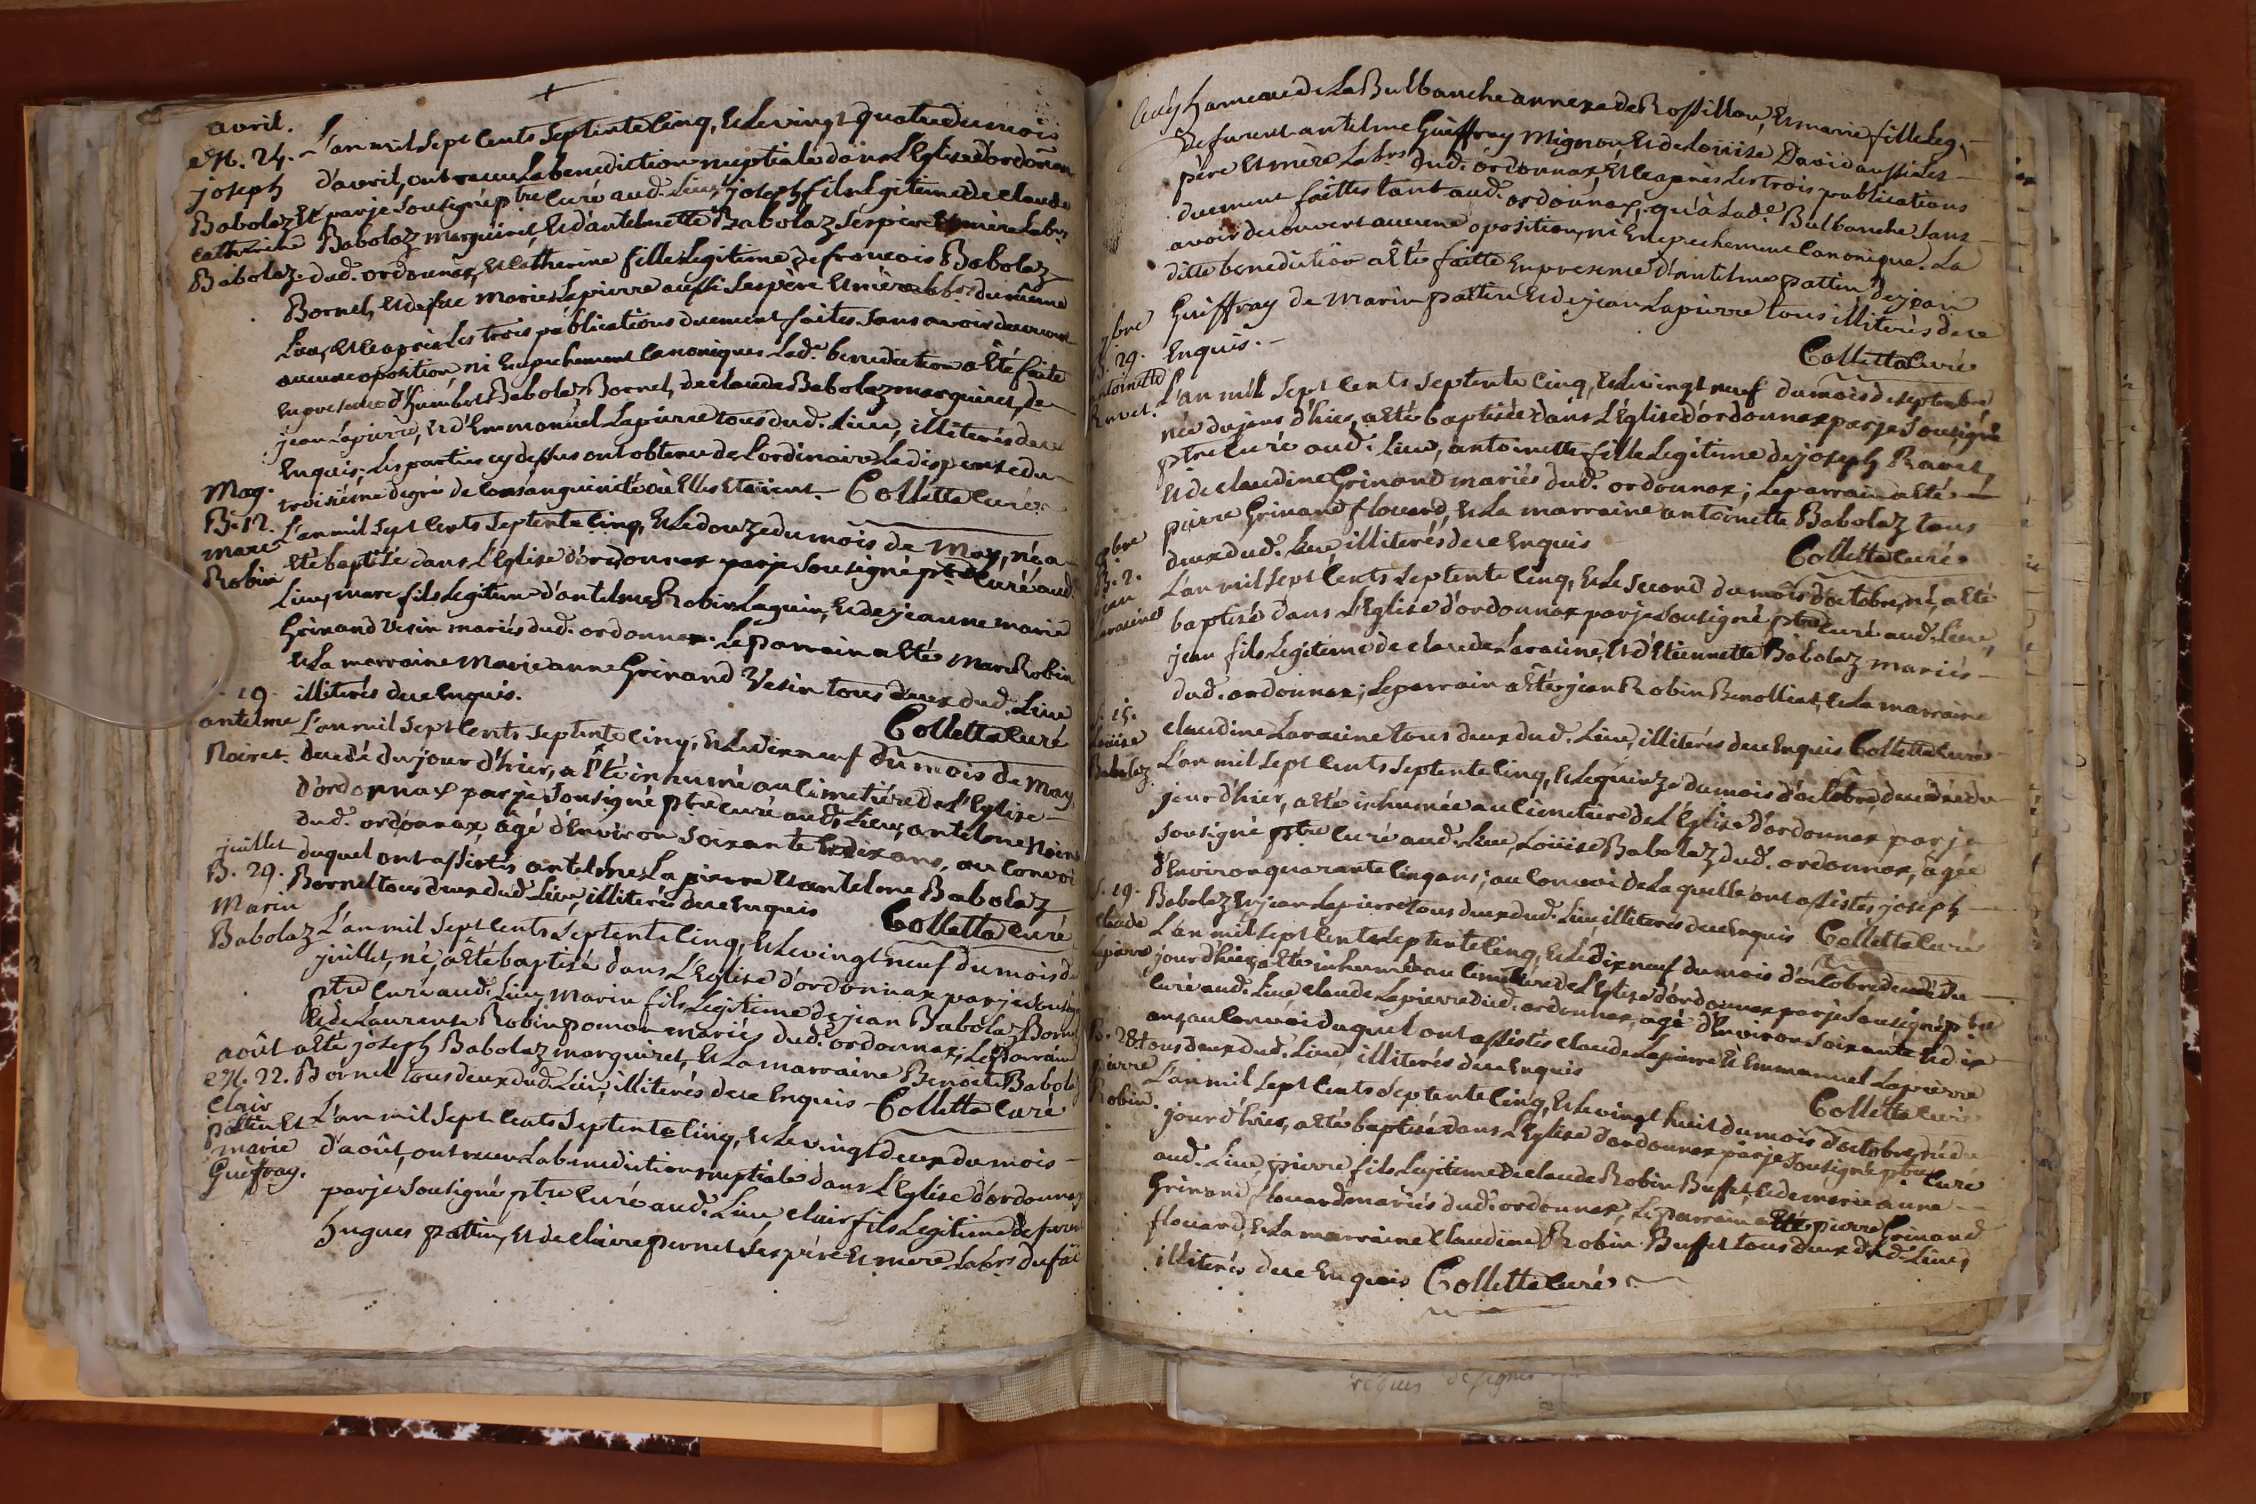 avril.
M. 24.
joseph
Babolaz Et
catherine
Babolaz
L'an mil sept Cents septente Cinq, et Le vingt quatre du mois
d'avril, ont receu La benediction nuptiale dans L'Eglise d'ordonnax
par je sousigné ptre Curé aud. Lieu, joseph fils Legitime de claude
Babolaz marguiret, et d'antelmette Babolaz ses père Et mère Labrs
dud. ordonnax, et catherine fille Legitime de francois Babolaz
Bornel, et de fue marie Lapierre aussi ses père et mère labrs du même
Lieu, et Ce après Les trois publications duement faites sans avoir decouvert
aucune oposition, ni Empechement Canoniques. Lad. benediction a Eté faite
En presence d'humbert Babolaz Bornel, de claude Babolaz marguiret, de
jean Lapierre, et d'Emmanuel Lapierre tous dud. Lieu, illiterés de ce
Enquis; Les parties cy dessus ont obtenu de L'ordinaire La dispense du
troisième degré de Consanguinité où Elles Etoient. Colletta Curé
May.
B. 12.
marc
Robin
L'an mil sept Cents septente Cinq, et Le douze du mois de May, né a
Eté baptisé dans L'Eglise d'ordonnax par je sousigné ptre Curé aud.
Lieu, marc fils Legitime d'antelme Robin Laguin, et de jeanne marie
Grinand Vesin mariés dud. ordonnax. Le parrain a Eté Marc Robin
et La marraine Marie anne Grinand Vesin tous deux dud. Lieu
illiterés de ce Enquis.
Colletta Curé
19.
antelme
Noiret.
L'an mil sept Cents septente Cinq, et Le dix neuf du mois de May
decédé du jour d'hier, a Eté inhumé au Cimetière de L'Eglise
d'ordonnax par je sousigné ptre Curé aud. Lieu, antelme Noiret
dud. ordonnax âgé d'Environ soixante et dix ans, au Convoi
duquel ont assistés antelme Lapierre et antelme Babolaz
Bornel tous deux dud. Lieu, illiterés de ce Enquis Colletta Curé
juillet
B. 29.
Marin
Babolaz
L'an mil sept Cents septente Cinq, et Le vingt neuf du mois de
juillet, né, a Eté baptisé dans L'Eglise d'ordonnax par je sousigné
ptre Curé aud. Lieu, Marin fils Legitime de jean Babolaz Bornel
et de Laurence Robin pomon mariés dud. ordonnax; Le parrain
a Eté joseph Babolaz marguiret, et La marraine Benoite Babolaz
Bornel tous deux dud. Lieu, illiterés de ce Enquis Colletta Curé
août
M. 22.
Clair
pattin Et
marie
Guiffray.
L'an mil sept Cents septente Cinq, et Le vingt deux du mois
d'août, ont receu La benediction nuptiale dans L'Eglise d'ordonnax
par je sousigné ptre Curé aud. Lieu, clair fils Legitime de furent
hugues pattin, et de claire pernet ses père et mère Labrs du
hameau de La Bulbanche annexe de Rossillon, et marie fille Leg.
de furent antelme Guiffray Mignon et de Loüise David aussi ses
père et mère Labrs dud. ordonnax, et Ce après Les trois publications
duement faittes tant aud. ordonnax, qu'à Lade. Bulbanche sans
avoir decouvert aucune oposition, ni Empechement Canonique. La
ditte benediction a Eté faitte En presence d'antelme pattin, de jean
Guiffray de Marin pattin et de jean Lapierre tous illiterés de ce
Enquis.
Colletta Curé
7bre
B. 29.
antoinette
Ravet.
L'an mil sept Cents septente Cinq, et Le vingt neuf du mois de septembre
née du jour d'hier, a Eté baptisée dans L'Eglise d'ordonnax par je sousigné
ptre Curé aud. Lieu, antoinette fille Legitime de joseph Ravet,
et de claudine Grinand mariés dud. ordonnax; Le parrain a Eté
pierre Grinand flouard, et La marraine antoinette Babolaz tous
deux dud. Lieu illiterés de ce Enquis
Colletta Curé
8bre
B. 2.
jean
Laracine
L'an mil sept Cents septente Cinq, et Le second du mois d'octobre, né, a Eté
baptisé dans L'Eglise d'ordonnax par je sousigné ptre Curé aud. Lieu,
jean fils Legitime de claude Laracine, et d'Etiennette Babolaz mariés
dud. ordonnax; Le parrain a Eté jean Robin Benolliat, et La marraine
claudine Laracine tous deux dud. Lieu, illiterés de ce Enquis Colletta Curé
S. 15.
Loüise
Babolaz
L'an mil sept Cents septente Cinq, et Le quinze du mois d'octobre, decédée du
jour d'hier, a Eté inhumée au Cimetière de L'Eglise d'ordonnax par je
sousigné ptre Curé aud. Lieu, Loüise Babolaz dud. ordonnax, âgée
d'Environ quarante Cinq ans; au Convoi de Laquelle ont assistés joseph
Babolaz et jean Lapierre tous deux dud. Lieu, illiterés de ce Enquis Colletta Curé
S. 19.
claude
Lapierre
L'an mil sept Cents septente Cinq, et Le dix neuf du mois d'octobre decédé du
jour d'hier, a Eté inhumé au Cimetière de L'Eglise d'ordonnax par je sousigné ptre
Curé aud. Lieu claude Lapierre dud. ordonnax, âgé d'Environ soixante et dix
ans, au Convoi duquel ont assistés claude Lapierre et Emmanuel Lapierre
tous deux dud. Lieu illiterés de ce Enquis
Colletta Curé
B. 28.
pierre
Robin.
L'an mil sept Cents septente Cinq, et Le vingt huit du mois d'octobre, né du
jour d'hier, a Eté baptisé dans L'Eglise d'ordonnax par je sousigné ptre Curé
aud. Lieu, pierre fils Legitime de claude Robin Buffet, et de marie anne
Grinand flouard mariés dud. ordonnax, Le parrain a Eté pierre Grinand
flouard, et La marraine Claudine Robin Buffet tous deux dud. Lieu,
illiterés de ce Enquis Colletta Curé
requis de signer